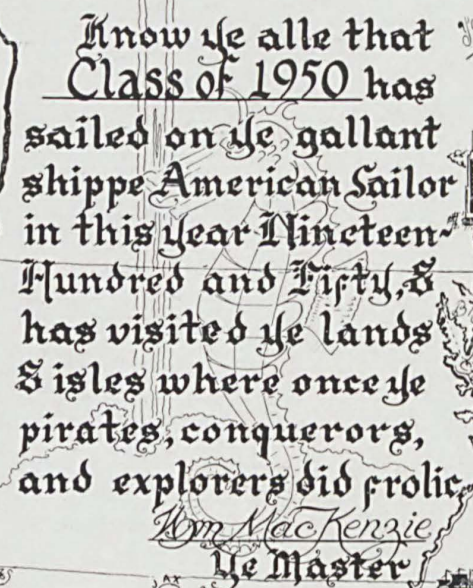 Know ye alle that
Class of 1950 has
sailed on ye gallant
shippe American Sailor
in this year Nineteen-
Hundred and Fifty, &
has visited ye lands
& isles where once ye
pirates, conquerors,
and explorers did frolic.
Wm MacKenzie
Ye Master